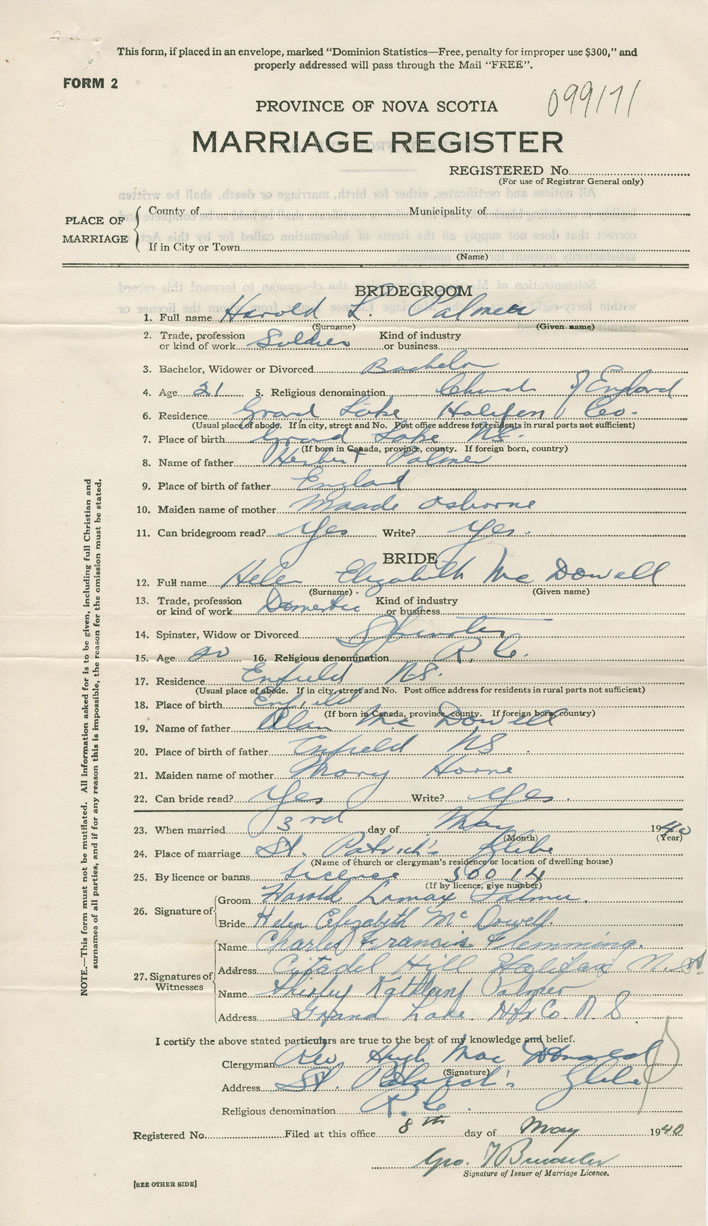 This form, if placed in an envelope, marked "Dominion Statistics—Free, penalty for improper use $300," and
properly addressed will pass through the Mail "FREE".
FORM 2
099171
PROVINCE OF NOVA SCOTIA
MARRIAGE REGISTER
REGISTERED No.
(For use of Registrar General only)
PLACE OF MARRIAGE
County of Municipality of
If in City or Town
(Name)
BRIDEGROOM
1. Full name Harold L. Palmer
(Surname) (Given name)
2. Trade, profession or kind of work Soldier Kind of industry or business
3. Bachelor, Widower or Divorced Bachelor
4. Age 21 5. Religious denomination Church of England
6. Residence Grand Lake Halifax Co.
(Usual place of abode. If in city, street and No. Post office address for residents in rural parts not sufficient)
7. Place of birth Grand Lake N.S.
(If born in Canada, province, county. If foreign born, country)
8. Name of father Herbert Palmer
9. Place of birth of father England
10. Maiden name of mother Maade Osborne
11. Can bridegroom read? Yes Write? Yes.
BRIDE
12. Full name Helen Elizabeth Mc Dowell
(Surname) (Given name)
13. Trade, profession or kind of work Domestic Kind of industry or business
14. Spinster, Widow or Divorced Spinster
15. Age 20 16. Religious denomination R. C.
17. Residence Enfield N.S.
(Usual place of abode. If in city, street and No. Post office address for residents in rural parts not sufficient)
18. Place of birth Enfield
(If born in Canada, province, county. If foreign born, country)
19. Name of father Alan Mc Dowell
20. Place of birth of father Enfield NS
21. Maiden name of mother Mary Horne
22. Can bride read? Yes Write? Yes.
23. When married 3rd day of May 1940
(Month) (Year)
24. Place of marriage St. Patrick's Glebe
(Name of church or clergyman's residence or location of dwelling house)
25. By licence or banns Licence 50014
(If by licence, give number)
26. Signature of
Groom Harold Lomax Palmer.
Bride Helen Elizabeth McDowell.
27. Signatures of Witnesses
Name Charles Francis Flemming.
Address Citadel Hill Halifax N.S.
Name Shirley Palmer
Address Grand Lake Hfx Co. N.S.
I certify the above stated particulars are true to the best of my knowledge and belief.
Clergyman Rev Hugh Mac Donald
(Signature)
Address St. Patrick's Glebe
Religious denomination R. C.
Registered No. Filed at this office 8th day of May 1940
Geo.
Signature of Issuer of Marriage Licence.
[SEE OTHER SIDE]
NOTE.—This form must not be mutilated. All information asked for is to be given, including full Christian and
surnames of all parties, and if for any reason this is impossible, the reason for the omission must be stated.